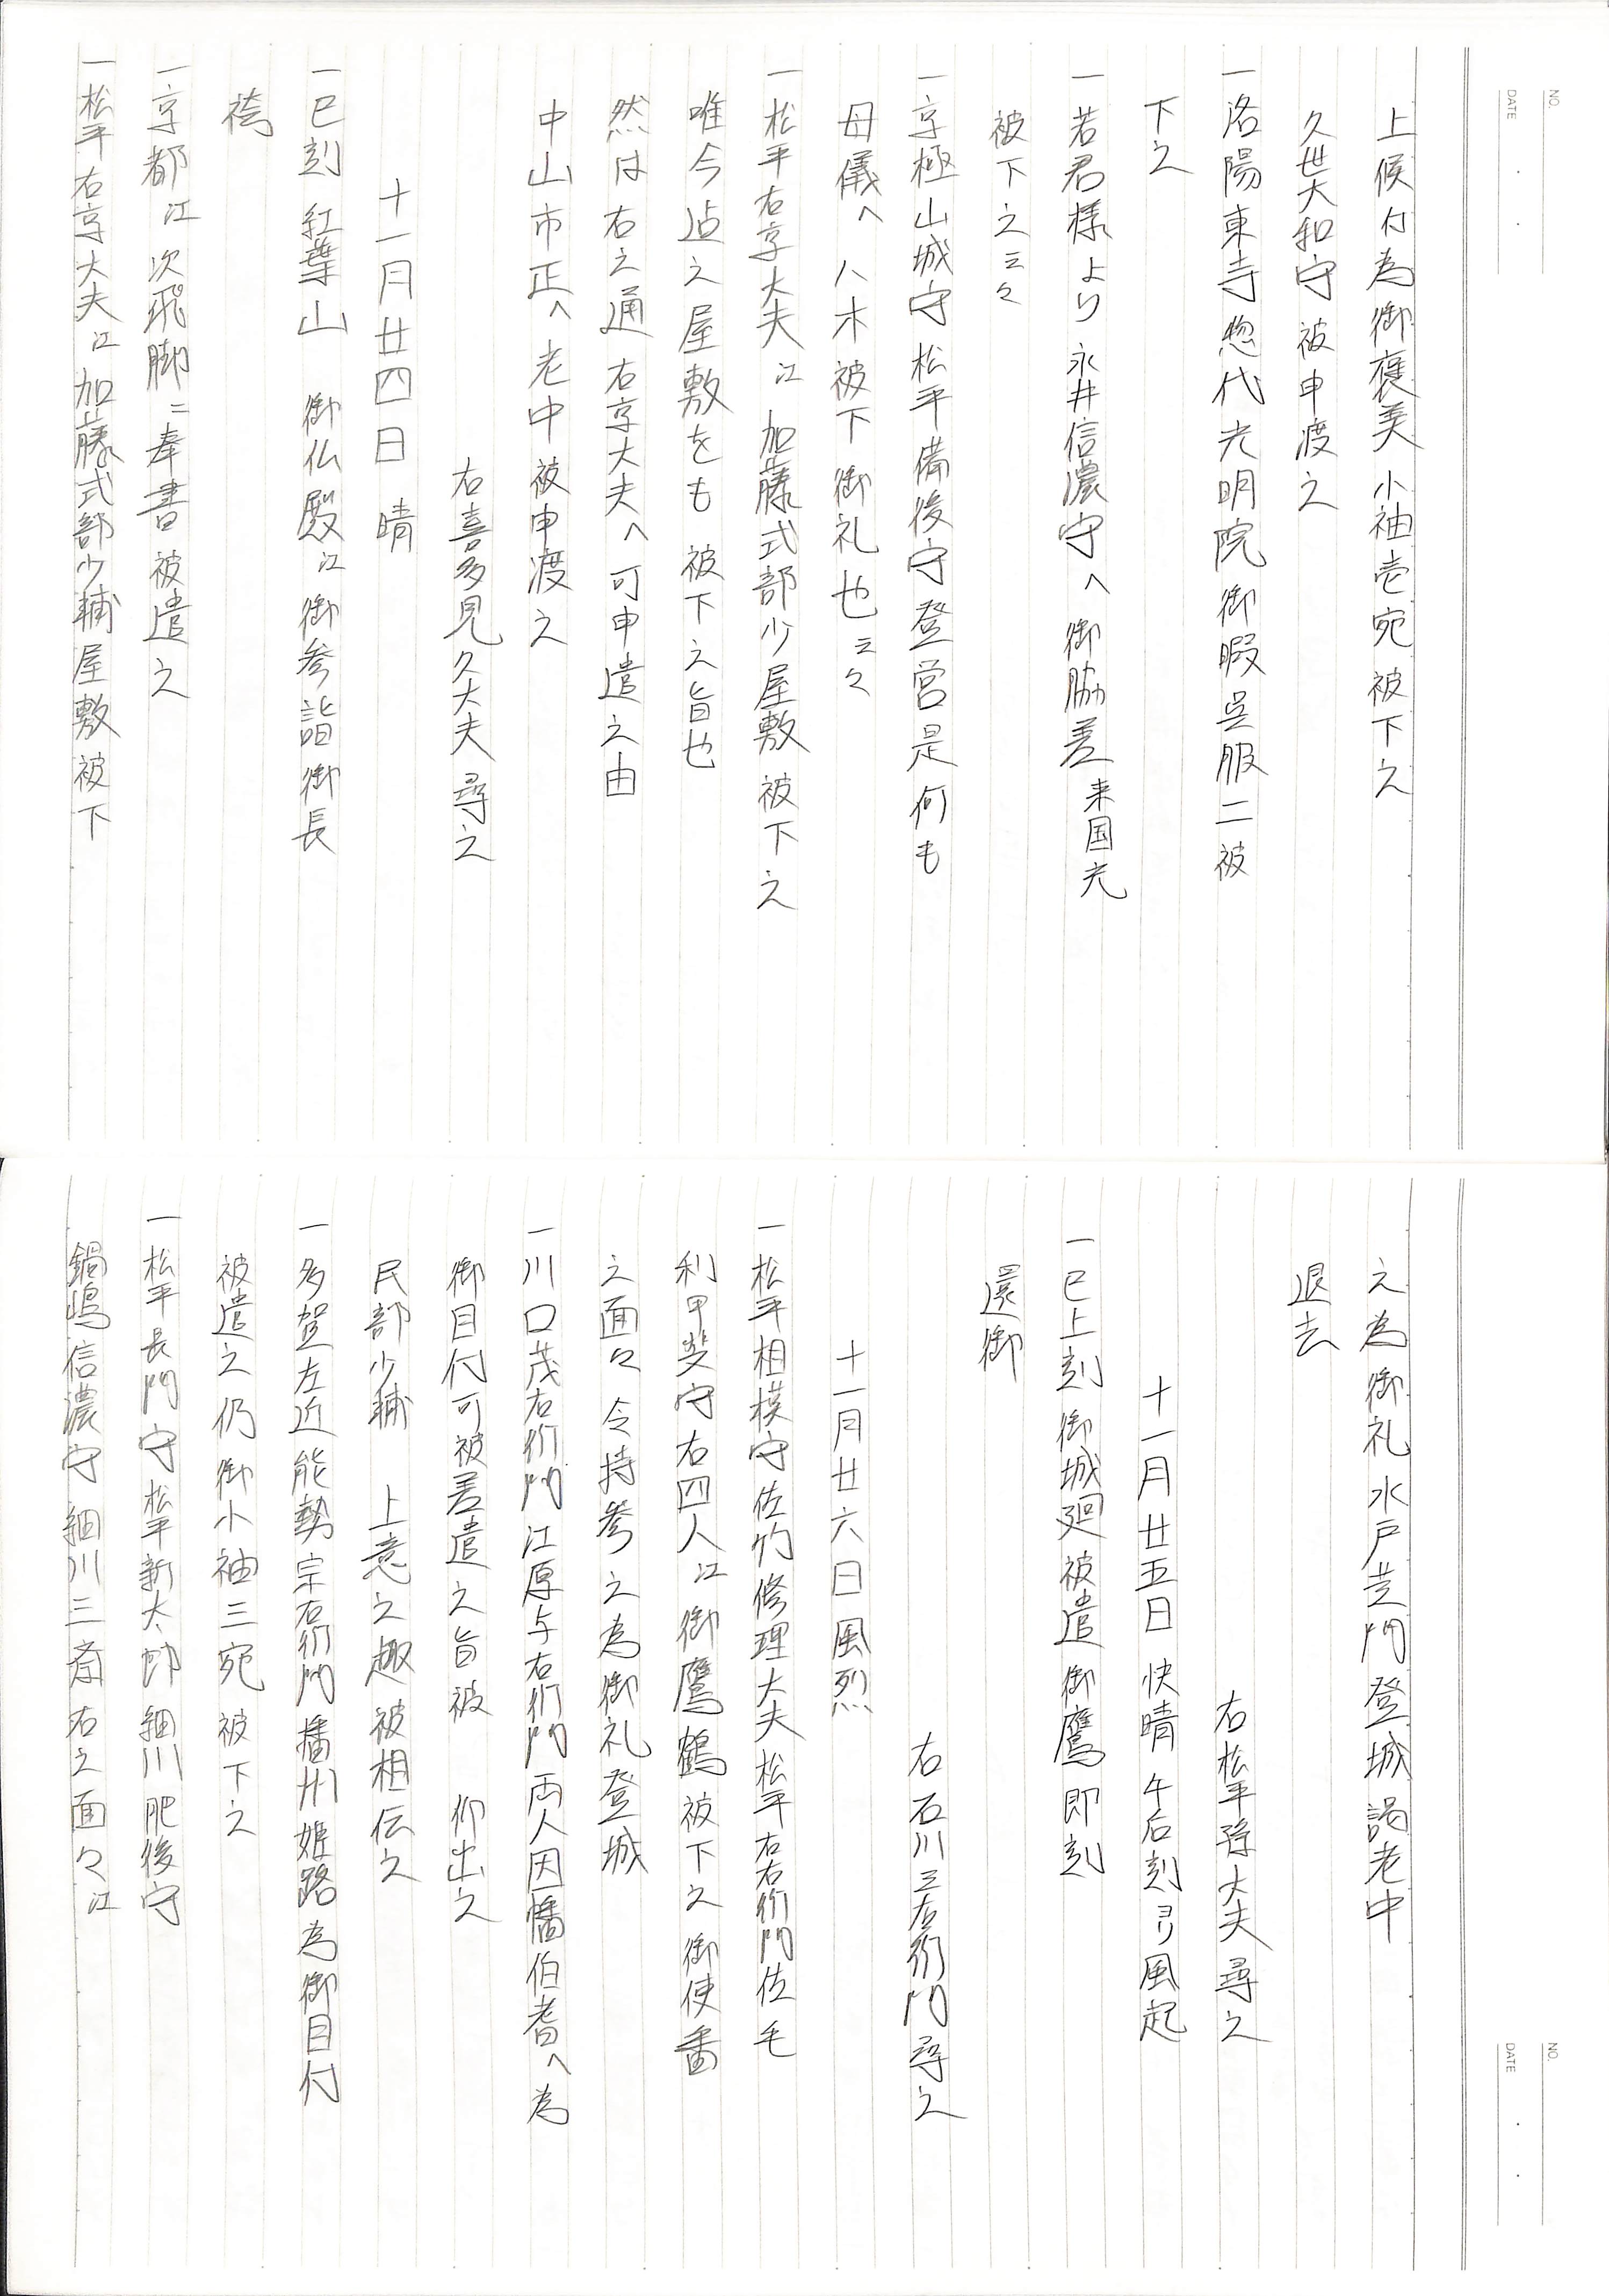 NO.
DATE
上候付為御褒美小袖壱宛被下之
久世大和守被申渡之
一洛陽東寺惣代光明院御暇呉服二被
下之
一若君様より永井信濃守へ御脇差来国光
被下之云々
一京極山城守松平備後守登営是何も
母儀へ八木被下御礼也云々
一松平右京大夫江加藤式部少屋敷被下之
唯今迠之屋敷をも被下之旨也
然は右之通右京大夫へ可申遣之由
中山市正へ老中被申渡之
右喜多見久大夫尋之
十一月廿四日晴
一巳刻紅葉山御仏殿江御参詣御長
袴
一京都江次飛脚ニ奉書被遣之
一松平右京大夫江加藤式部少輔屋敷被下
NO.
DATE
之為御礼水戸芝門登城謁老中
退去
右松平隼大夫尋之
十一月廿五日快晴午后刻ヨリ風起
一巳上刻御城廻被遣御鷹即刻
還御
右石川三右衛門尋之
十一月廿六日風烈
一松平相模守佐竹修理大夫松平右右衛門佐毛
利甲斐守右四人江御鷹鶴被下之御使番
之面々令持参之為御礼登城
一川口茂右衛門江原与右衛門両人因幡伯耆へ為
御目付可被差遣之旨被仰出之
民部少輔上意之趣被相伝之
一多賀左近能勢宗右衛門播州姫路為御目付
被遣之仍御小袖三宛被下之
一松平長門守松平新太郎細川肥後守
鍋嶋信濃守細川三斎右之面々江